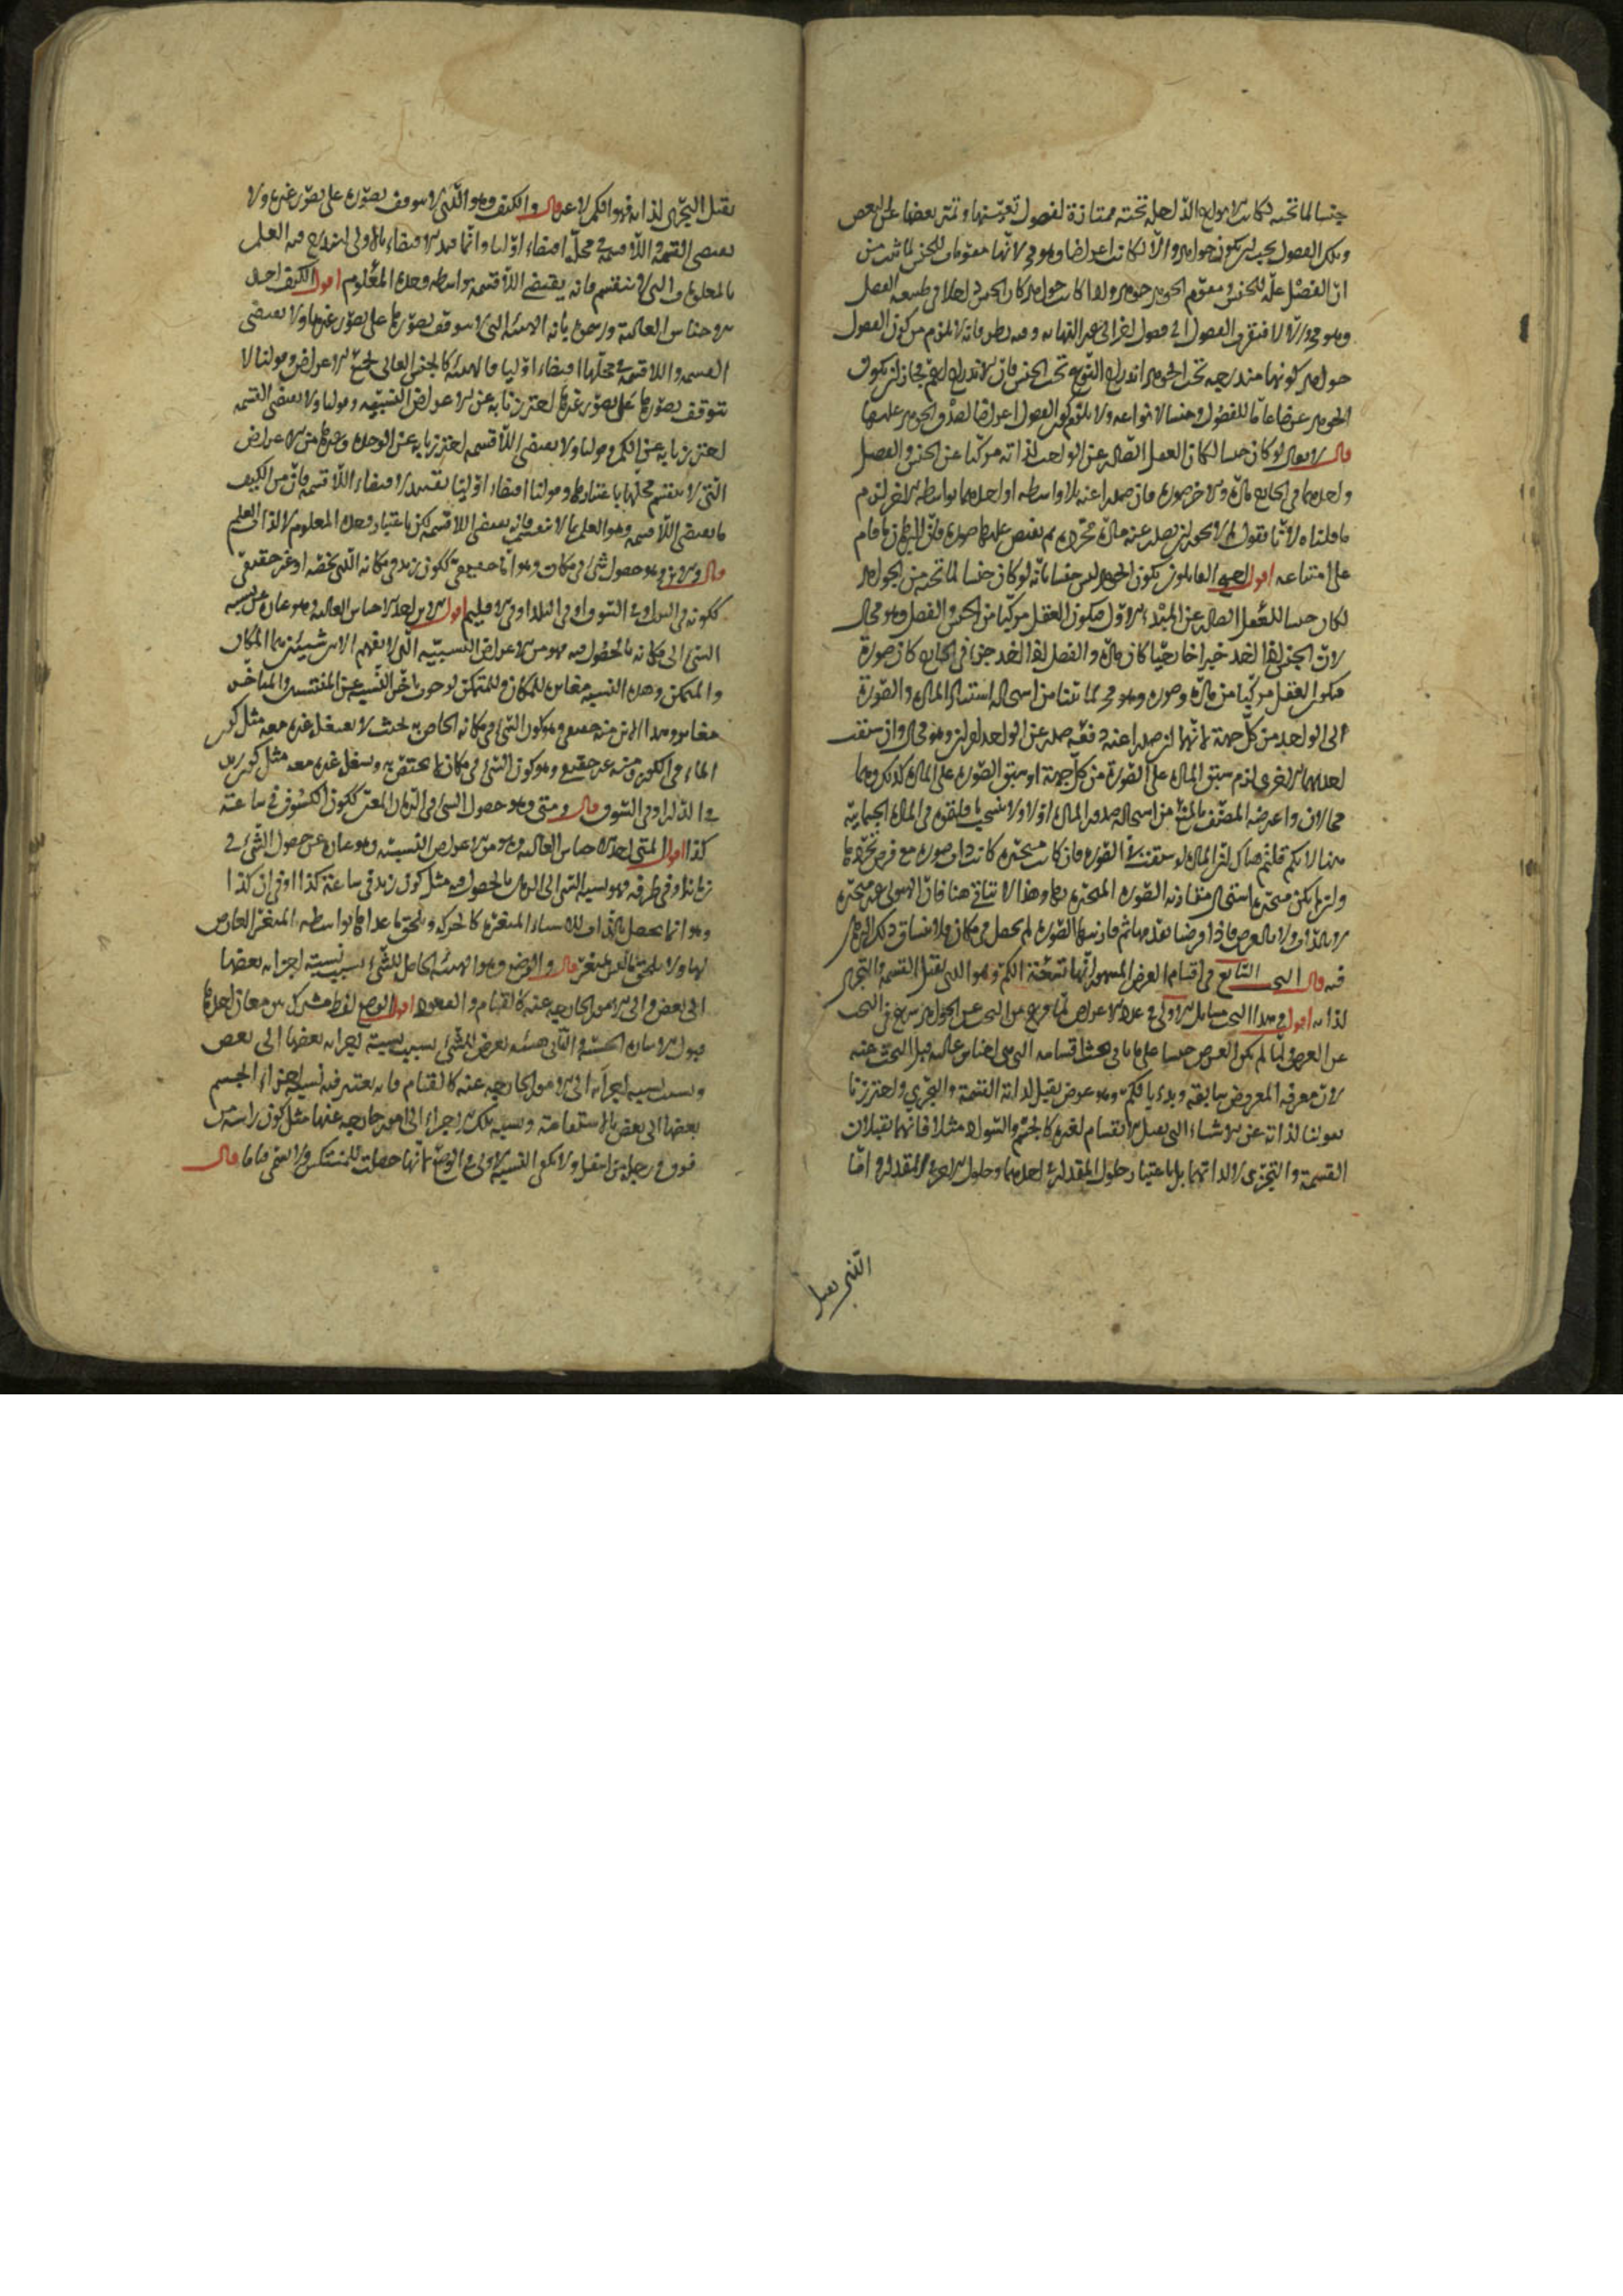 جنسا لما تحته لكانت الانواع الداخلة تحته ممتازة بفصول تعينها وتميز بعضها عن البعض
وتلك الفصول يجب ان يكون جواهر والا لكانت اعراضا وهو مح لانها مقومات للجنس لما ثبت من
ان الفصل علة للجنس ومقوم الجوهر جوهر واذا كانت جواهر كان الجنس داخلا في طبيعة الفصل
وهو مح والا لافتقرت الفصول الى فصول اخر الى غير النهاية وفيه نظر فانه لا يلزم من كون الفصول
جواهر كونها مندرجة تحت الجوهر اندراج النوع تحت الجنس
الجوهر عرضا عاما للفصول وجنسا لانواعه ولا يلزم كون الفصول اعراضا لصدق الجوهر عليها
قال ولانه لو كان جنسا لكان العقل الصادر عن الواجب لذاته مركبا عن الجنس والفصل
واحدهما في الخارج مادة والاخر صورة فان صدرا عنه بلا واسطة او احدهما بواسطة الاخر لزم
ما قلناه لانا نقول لم لا يجوز ان يصدر عنه مادة مجردة ثم يفيض عليها صورة فان البرهان ما قام
على امتناعه اقول احتج القائلون بكون الجوهر ليس جنسا بانه لو كان جنسا لما تحته من الجواهر
لكان جنسا للعقل الصادر عن المبدء الاول فيكون العقل مركبا من الجنس والفصل وهو محال
لان الجنس اذا اخذ خبرا خارجيا كان مادة والفصل اذا اخذ جزءا في الخارج كان صورة
فيكون العقل مركبا من مادة وصورة وهو مح لما بينا من استحالة استناد المادة والصورة
الى الواحد من كل جهة لانهما ان صدرا عنه دفعة صدر عن الواحد امران وهو محال وان سبقت
احدهما الاخرى لزم سبق المادة على الصورة من كل جهة او سبق الصورة على المادة كذلك وهما
محالان واعترضه المصنف بالمنع من استحالة صدور المادة اولا
ههنا لانكم قلتم هناك ان المادة لو سبقت الصورة فان كانت متحيزة كانت ذات صورة مع فرض تجردها
وان لم يكن متحيزة استحال مقارنة الصورة المتحيزة بها وهذا لا يتاتى هنا فان الهيولى غير متحيزة
لا بالذات ولا بالعرض فاذا فرضنا تقدمها ثم قارنتها الصورة لم يحصل في مكان
فيه قال البحث التاسع في اقسام العرض المشهور انها تسعة الكم وهو الذي يقبل القسمة والتجزى
لذاته اقول في هذا البحث مسايل الاولى في عدد الاعراض لما فرغ من البحث عن الجواهر شرع في البحث
عن العرض ولما لم يكن العرض جنسا على ما ياتي بحث اقسامه التي هي اجناس عالية قبل البحث عنه
لان معرفة المعروض سابقه وبدء بالكم وهو عرض يقبل لذاته القسمة والتجزي واحترزنا
بقولنا لذاته عن الاشياء التي يقبل الانقسام لغيره كالجسم والسواد مثلا فانهما يقبلان
القسمة والتجزى لا لذاتهما بل باعتبار حلول المقدار في احدهما وحلول الاخر في المقدار واما
الذي يقبل
يقبل التجزى لذاته فهو الكم لا غير قال والكيف وهو الذي لا يتوقف تصوره على تصور غيره ولا
يقتضى القسمة واللاقسمة في محله اقتضاء اوليا وانما قيد الاقتضاء بالاولى ليندرج فيه العلم
بالمعلومات التي لا ينقسم فانه يقتضي اللاقسمة بواسطة وحدة المعلوم اقول الكيف احد
الاجناس العالية ورسموه بانه الهيئة التي لا يتوقف تصورها على تصور غيرها ولا يقتضى
القسمة واللاقسمة في محلها اقتضاء اوليا فالهيئة كالجنس العالي لجميع الاعراض وقولنا لا
يتوقف تصورها على تصور غيرها احترزنا به عن الاعراض النسبية وقولنا ولا يقتضى القسمة
احترزنا به عن الكم وقولنا ولا يقتضى اللاقسمة احترزنا به عن الوحدة وغيرها من الاعراض
التي لا ينقسم محلها باعتبارها وقولنا اقتضاء اوليا تقييد لاقتضاء اللاقسمة فان من الكيف
ما يقتضى اللاقسمة وهو العلم بما لا ينقسم فانه يقتضى اللاقسمة لكن باعتبار وحدة المعلوم لا لذات العلم
قال والاين وهو حصول شئ في مكان وهو اما حقيقي ككون زيد في مكانه الذي يخصه او غير حقيقي
ككونه في البيت او في السوق او في البلد او في الاقليم اقول الاين احد الاجناس العالية وهو عبارة عن نسبة
الشئ الى مكانه بالحصول فيه فهو من الاعراض النسبية التي لا يفهم الا بين شيئين هما المكان
والمتمكن وهذه النسبة مغايرة للمكان وللمتمكن لوجوب تاخر النسبة عن المنتسبين والمتاخر
مغاير وهذا الاين منه حقيقي وهو كون الشئ في مكانه الخاص به بحيث لا يسع غيره معه مثل كون
الماء في الكوز ومنه غير حقيقي وهو كون الشئ في مكان لا يختص به ويشغل غيره معه مثل كون زيد
في الدار او في السوق قال ومتى وهو حصول الشئ في الزمان المعين ككون الكسوف في ساعة
كذا اقول المتى احد الاجناس العالية وهو من الاعراض النسبية وهو عبارة عن حصول الشئ في
زمانه او في طرفه وهو نسبة الشئ الى الزمان بالحصول فيه مثل كون زيد في ساعة كذا او في ان كذا
وهو انما يحصل بالذات للاشياء المتغيرة كالحركة ويلحق ما عداها بواسطة المتغير العارض
لها ولا يلحق ما ليس بمتغير قال والوضع وهو الهيئة الحاصل للشئ بسبب نسبة اجزائه بعضها
الى بعض والى الامور الخارجية عنه كالقيام والقعود اقول الوضع لفظ مشترك بين معان احدها
قبول الاشارة الحسية والثاني هيئة تعرض للشئ بسبب نسبة اجزائه بعضها الى بعض
وبسبب نسبة اجزائه الى الامور الخارجية عنه كالقيام فانه يعتبر فيه نسبة اجزاء الجسم
بعضها الى بعض بالاستقامة ونسبة تلك الاجزاء الى امور خارجة عنها مثل كون راسه من
فوق ورجله من اسفل ولا يكفي النسبة الاولى في الوضع لانها حصلت للمنتكس ولا يسمى قياما قال